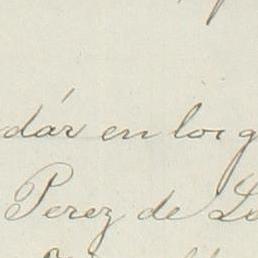 dár en los g
Perez de Lo